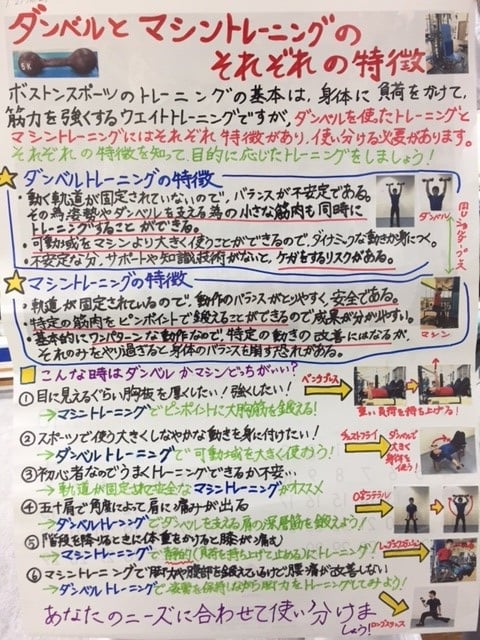 ダンベルと マシントレーニングの
それぞれの特徴
ボストンスポーツのトレーニングの基本は、身体に負荷をかけて、
筋力を強くするウエイトトレーニングですが、ダンベルを使ったトレーニングと
マシントレーニングにはそれぞれ特徴があり、使い分ける必要があります。
それぞれの特徴を知って、目的に応じたトレーニングをしましょう！
ダンベルトレーニングの特徴
・動く軌道が固定されていないので、バランスが不安定である。
その為姿勢やダンベルを支える為の小さな筋肉も同時に
トレーニングすることができる。
・可動域をマシンより大きく使うことができるので、ダイナミックな動きが身につく。
・不安定な分、サポートや知識技術がないと、ケガをするリスクがある。
ダンベル
同じショルダープレス
マシントレーニングの特徴
・軌道が固定されているので、動作のバランスがとりやすく、安全である。
・特定の筋肉をピンポイントで鍛えることができるので成果が分かりやすい。
・基本的にワンパターンな動作なので、特定の動きの改善にはなるが、
それのみをやり過ぎると身体のバランスを崩す恐れがある。
マシン
こんな時はダンベルかマシンどっちがいい？
①目に見えるぐらい胸板を厚くしたい！強くしたい！
→マシントレーニングでピンポイントに大胸筋を鍛える！
ベンチプレス
重い負荷を持ち上げる！
②スポーツで使う大きくしなやかな動きを身に付けたい！
→ダンベルトレーニングで可動域を大きく使おう！
チェストフライ
ダンベルで
大きく
身体を
使う！
③初心者なのでうまくトレーニングできるか不安…
→軌道が固定されて安全なマシントレーニングがオススメ
④五十肩で角度によって肩に痛みが出る
→ダンベルトレーニングでダンベルを支える肩の深層筋を鍛えよう！
⑤階段を降りるときに体重をかけると膝が痛む
→マシントレーニングで静的（負荷を持ち上げて止める）にトレーニング！
⑥マシントレーニングで脚力や腹部を鍛えているけど腰痛が改善しない
→ダンベルトレーニングで姿勢を保持しながら脚力をトレーニングしてみよう！
あなたのニーズに合わせて使い分けま
しょう！